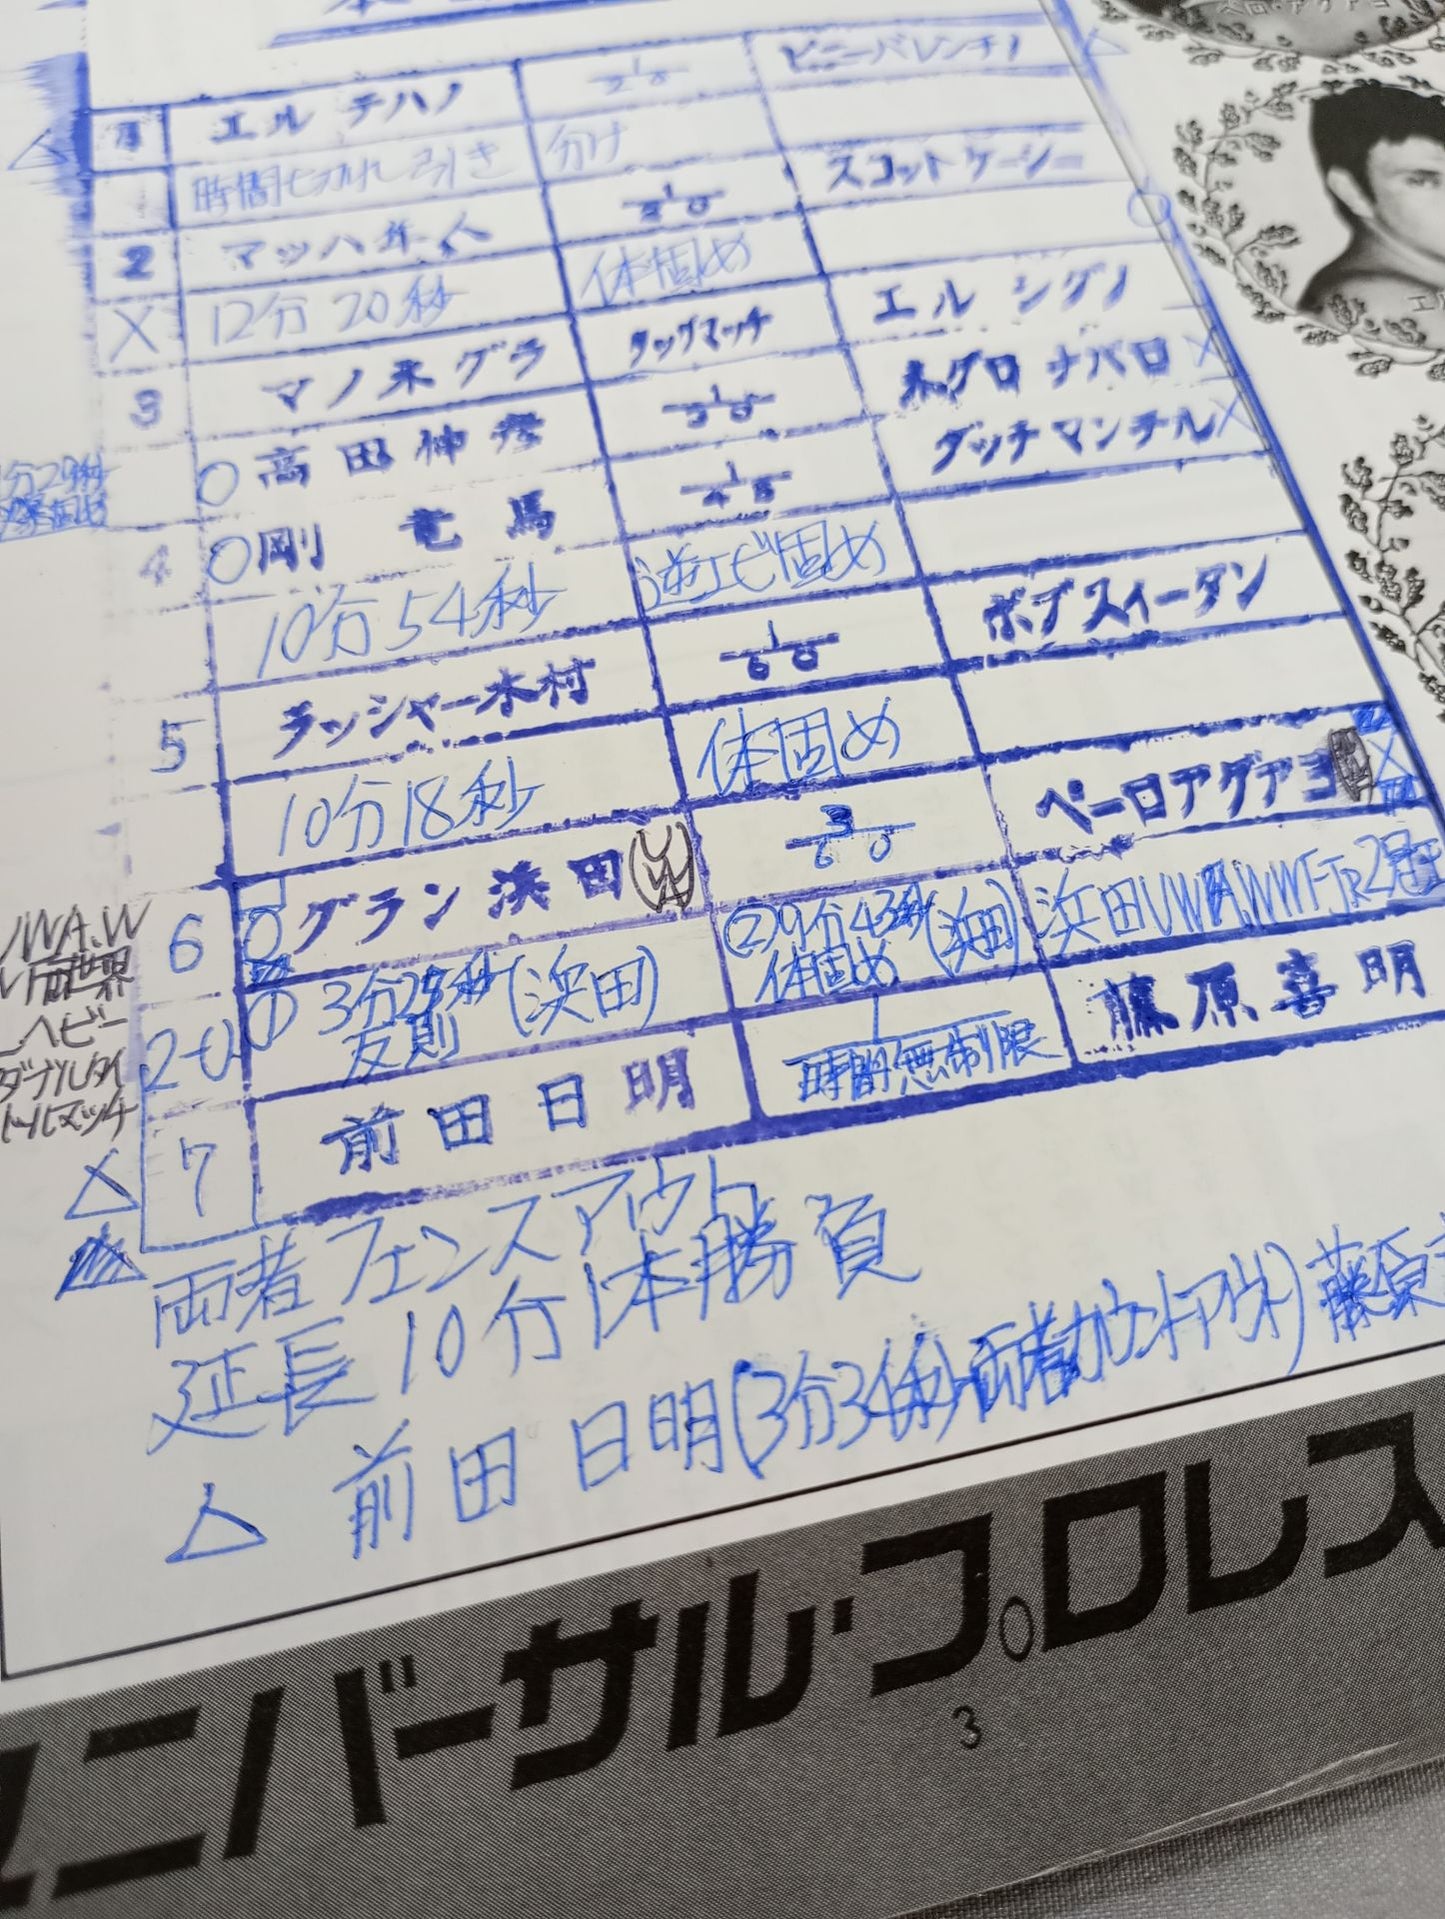 1 エル テハノ 1/20 ビニーバレンチノ
時間切れ引き 分け
2 マッハ隼人 1/20 スコットケーシー
X 12分20秒 体固め
3 マノ ネグラ タッグマッチ エル シグノ
○高田伸彦 1/30 ネグロ ナバロ X
分29秒
4 ○剛 竜馬 1/45 ダッチマンテル X
10分54秒 逆エビ固め
5 ラッシャー木村 1/60 ボブスイータン
10分18秒 体固め
6 ○グラン浜田 3/60 ペーロアグアヨ X
2-0 ① 3分 秒(浜田) ②9分43秒(浜田) 浜田UWA,WWFJr2冠王
反則 体固め
WA.W
世界
ヘビー
ダブルタイ
トルマッチ
△ 7 前田日明 1/時間無制限 藤原喜明
両者フェンスアウト
延長10分1本勝負
△ 前田日明(3分 秒両者カウントアウト)藤原
ユニバーサル・プロレス
3